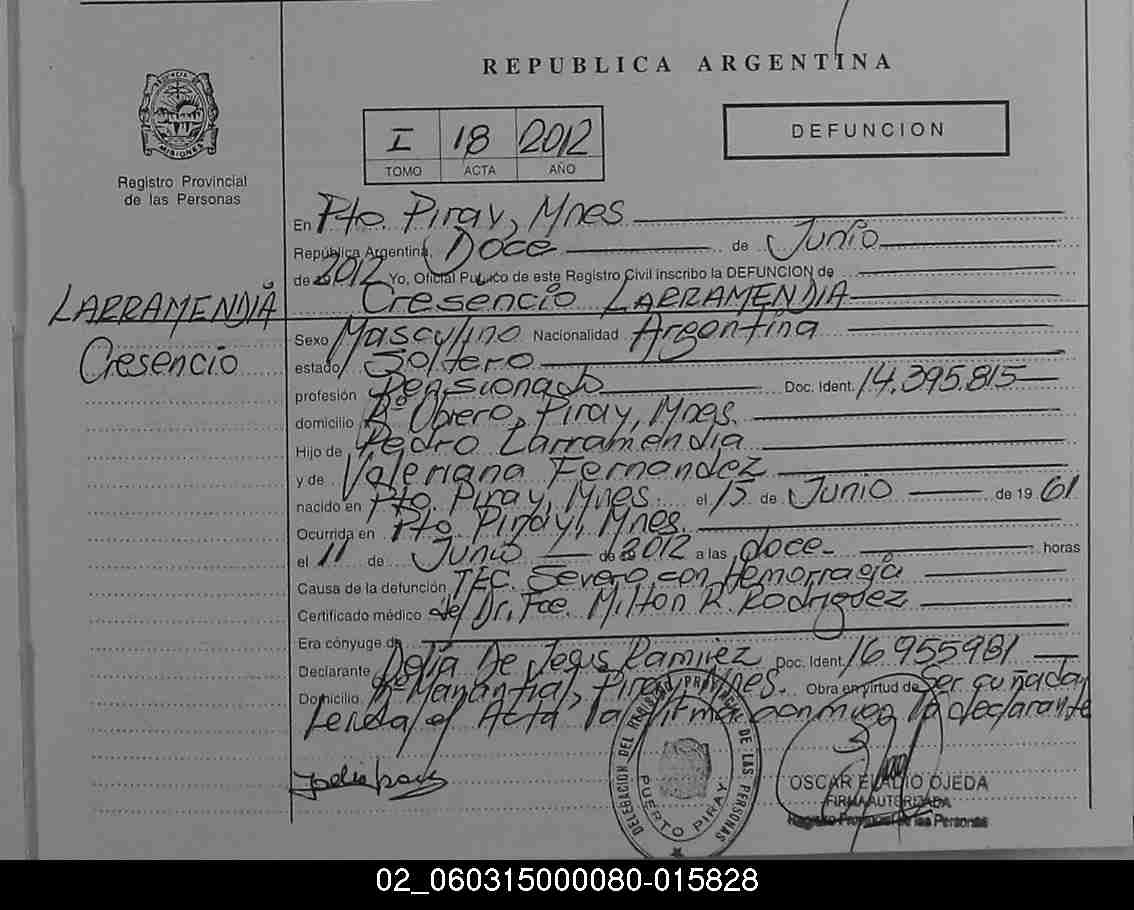 REPUBLICA ARGENTINA
PROVINCIA DE
MISIONES
Registro Provincial
de las Personas
I 18 2012
TOMO ACTA AÑO
DEFUNCION
En Pto. Piray, Mnes
República Argentina, Doce de Junio
de 2012 Yo, Oficial Público de este Registro Civil inscribo la DEFUNCION de
Cresencio LARRAMENDIA
LARRAMENDIA
Cresencio
Sexo Masculino Nacionalidad Argentina
estado Soltero
profesión Pensionado Doc. Ident. 14.395.815
domicilio Bº Obrero, Piray, Mnes.
Hijo de Pedro Larramendia
y de Valeriana Fernandez
nacido en Pto. Piray, Mnes. el 15 de Junio de 19 61
Ocurrida en Pto. Piray, Mnes.
el 11 de Junio de 2012 a las doce horas
Causa de la defunción TEC. Severo con Hemorragia
Certificado médico del Dr. Fce. Milton R. Rodriguez
Era cónyuge de
Declarante Delia De Jesus Ramirez Doc. Ident. 16955981
Domicilio Bº Manantial, Piray, Mnes. Obra en virtud de Ser cuñada
Leida el Acta la firma conmigo la declarante
DELEGACION DEL REGISTRO PROVINCIAL DE LAS PERSONAS
PUERTO PIRAY
OSCAR ELADIO OJEDA
FIRMA AUTORIZADA
Registro Provincial de las Personas
02_060315000080-015828